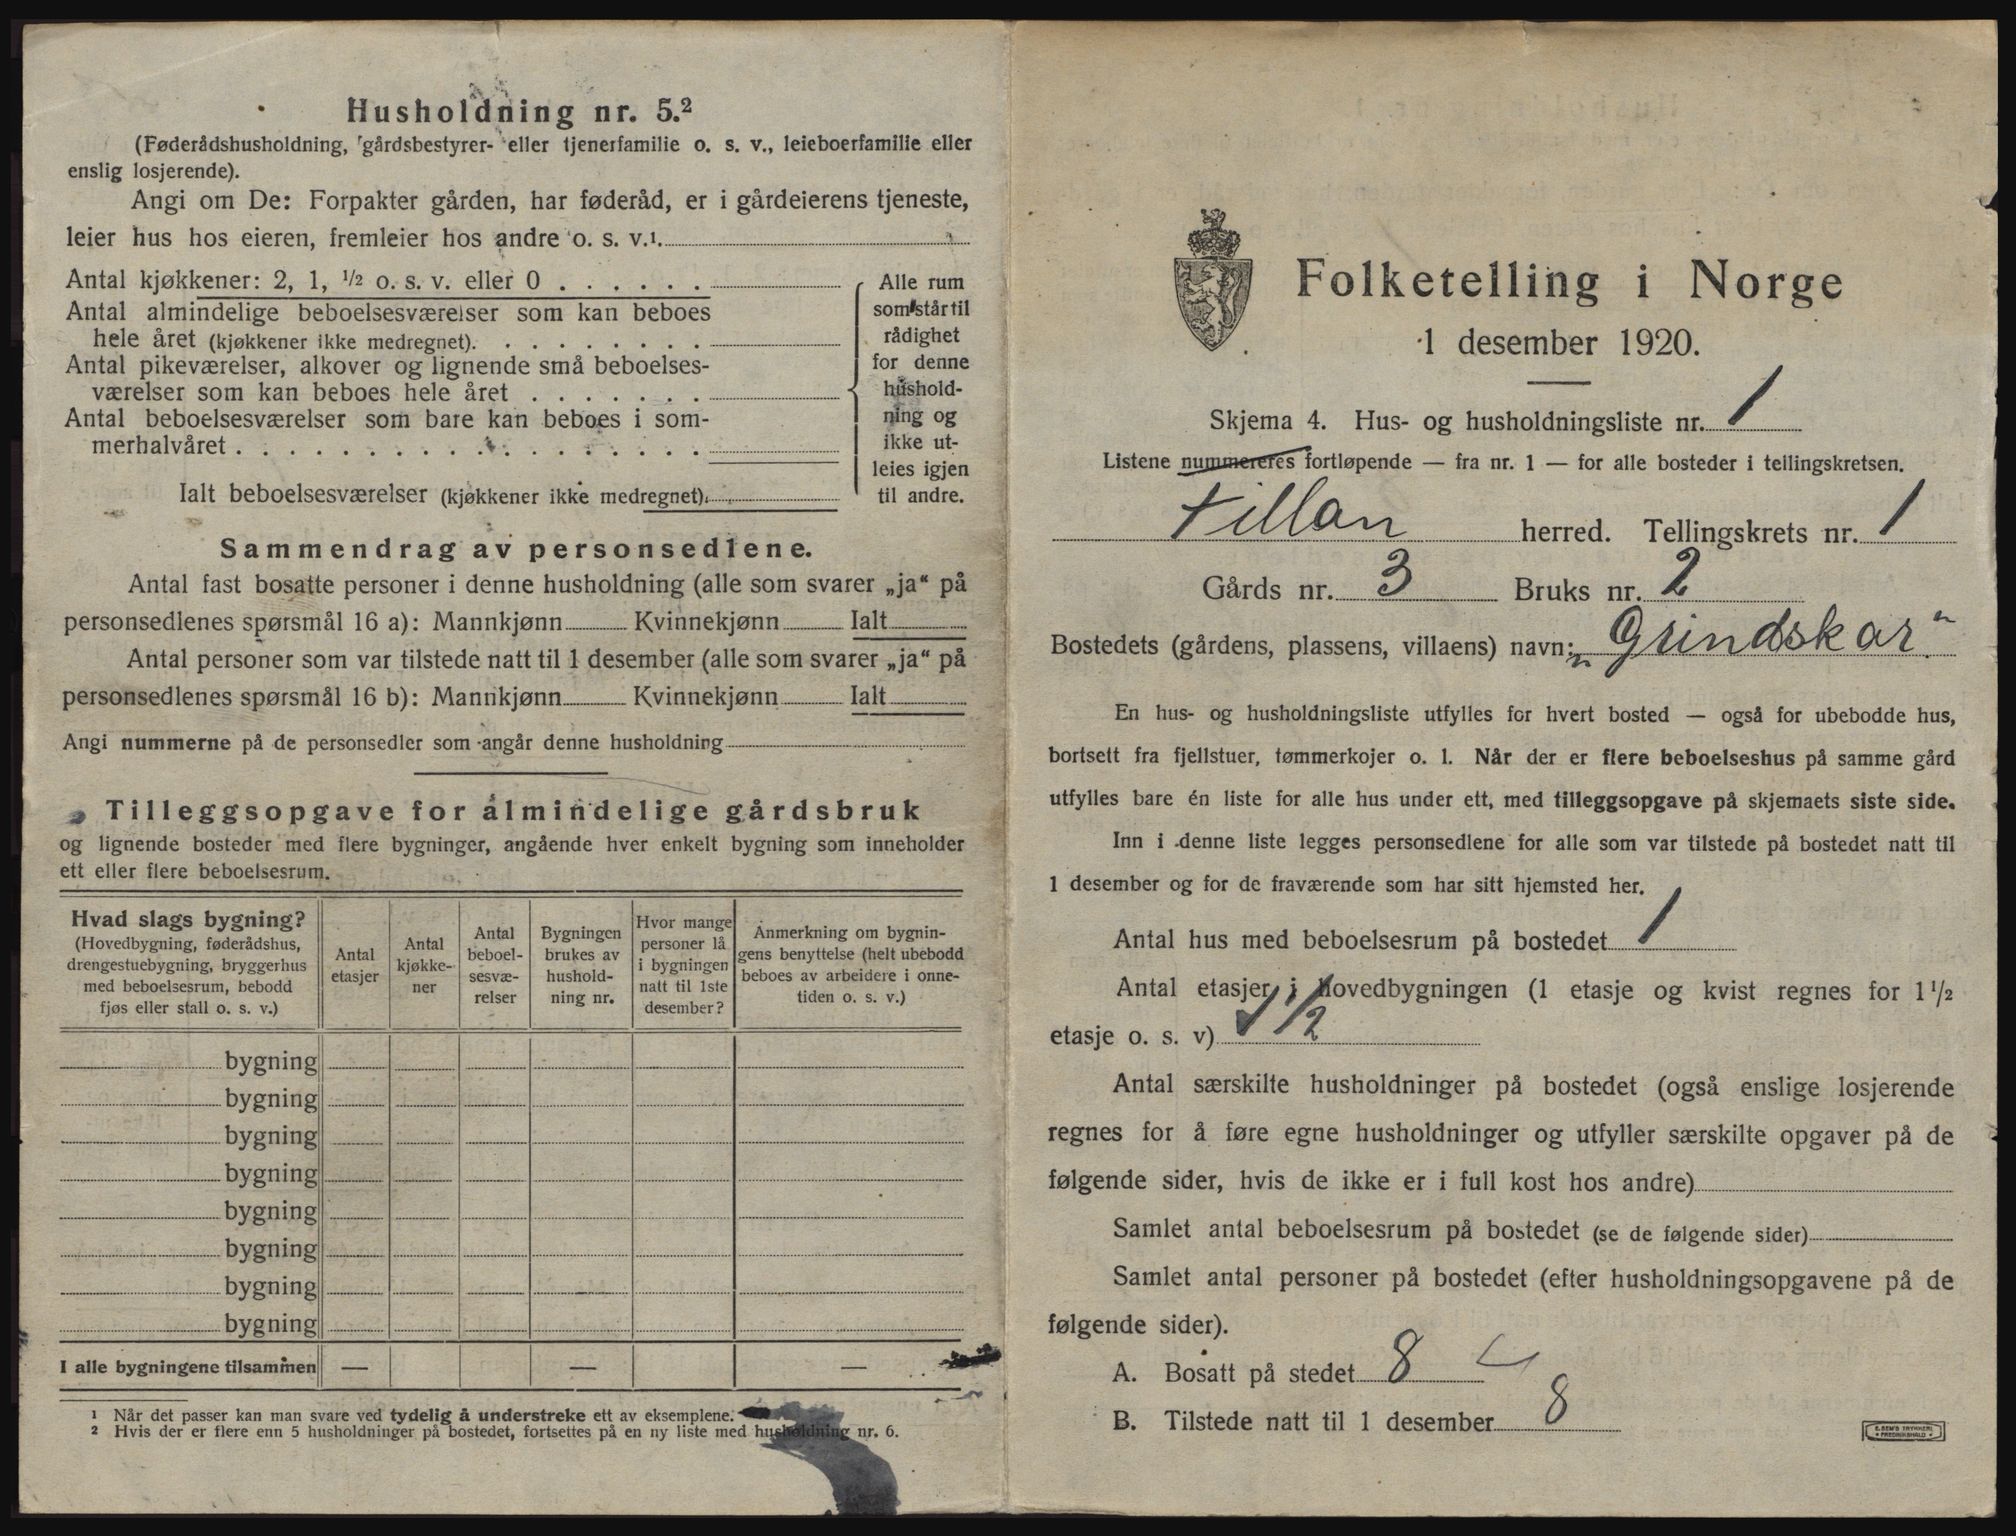 Husholdning nr. 5.²
(Føderådshusholdning, gårdsbestyrer- eller tjenerfamilie o. s. v., leieboerfamilie eller
enslig losjerende).
Angi om De: Forpakter gården, har føderåd, er i gårdeierens tjeneste,
leier hus hos eieren, fremleier hos andre o. s. v.¹
Antal kjøkkener: 2, 1, ½ o. s. v. eller 0 . . . . . .
Antal almindelige beboelsesværelser som kan beboes
hele året (kjøkkener ikke medregnet). . . . . . . . .
Antal pikeværelser, alkover og lignende små beboelses-
værelser som kan beboes hele året . . . . . . .
Antal beboelsesværelser som bare kan beboes i som-
merhalvåret . . . . . . . . . . . . . . . .
Ialt beboelsesværelser (kjøkkener ikke medregnet).
Alle rum
som står til
rådighet
for denne
hushold-
ning og
ikke ut-
leies igjen
til andre.
Sammendrag av personsedlene.
Antal fast bosatte personer i denne husholdning (alle som svarer „ja“ på
personsedlenes spørsmål 16 a): Mannkjønn Kvinnekjønn Ialt
Antal personer som var tilstede natt til 1 desember (alle som svarer „ja“ på
personsedlenes spørsmål 16 b): Mannkjønn Kvinnekjønn Ialt
Angi nummerne på de personsedler som angår denne husholdning
Tilleggsopgave for almindelige gårdsbruk
og lignende bosteder med flere bygninger, angående hver enkelt bygning som inneholder
ett eller flere beboelsesrum.
Hvad slags bygning?
(Hovedbygning, føderådshus,
drengestuebygning, bryggerhus
med beboelsesrum, bebodd
fjøs eller stall o. s. v.)
Antal
etasjer
Antal
kjøkke-
ner
Antal
beboel-
sesvæ-
relser
Bygningen
brukes av
hushold-
ning nr.
Hvor mange
personer lå
i bygningen
natt til 1ste
desember?
Anmerkning om bygnin-
gens benyttelse (helt ubebodd
beboes av arbeidere i onne-
tiden o. s. v.)
bygning
bygning
bygning
bygning
bygning
bygning
bygning
bygning
I alle bygningene tilsammen — — —
¹ Når det passer kan man svare ved tydelig å understreke ett av eksemplene.
² Hvis der er flere enn 5 husholdninger på bostedet, fortsettes på en ny liste med husholdning nr. 6.
Folketelling i Norge
1 desember 1920.
Skjema 4. Hus- og husholdningsliste nr. 1
Listene nummereres fortløpende — fra nr. 1 — for alle bosteder i tellingskretsen.
Fillan herred. Tellingskrets nr. 1
Gårds nr. 3 Bruks nr. 2
Bostedets (gårdens, plassens, villaens) navn: „Grindskar“
En hus- og husholdningsliste utfylles for hvert bosted — også for ubebodde hus,
bortsett fra fjellstuer, tømmerkojer o. l. Når der er flere beboelseshus på samme gård
utfylles bare én liste for alle hus under ett, med tilleggsopgave på skjemaets siste side.
Inn i denne liste legges personsedlene for alle som var tilstede på bostedet natt til
1 desember og for de fraværende som har sitt hjemsted her.
Antal hus med beboelsesrum på bostedet 1
Antal etasjer i hovedbygningen (1 etasje og kvist regnes for 1 ½
etasje o. s. v) 1 ½
Antal særskilte husholdninger på bostedet (også enslige losjerende
regnes for å føre egne husholdninger og utfyller særskilte opgaver på de
følgende sider, hvis de ikke er i full kost hos andre)
Samlet antal beboelsesrum på bostedet (se de følgende sider)
Samlet antal personer på bostedet (efter husholdningsopgavene på de
følgende sider).
A. Bosatt på stedet 8
B. Tilstede natt til 1 desember 8
E. SEM'S TRYKKERI
FREDRIKSHALD